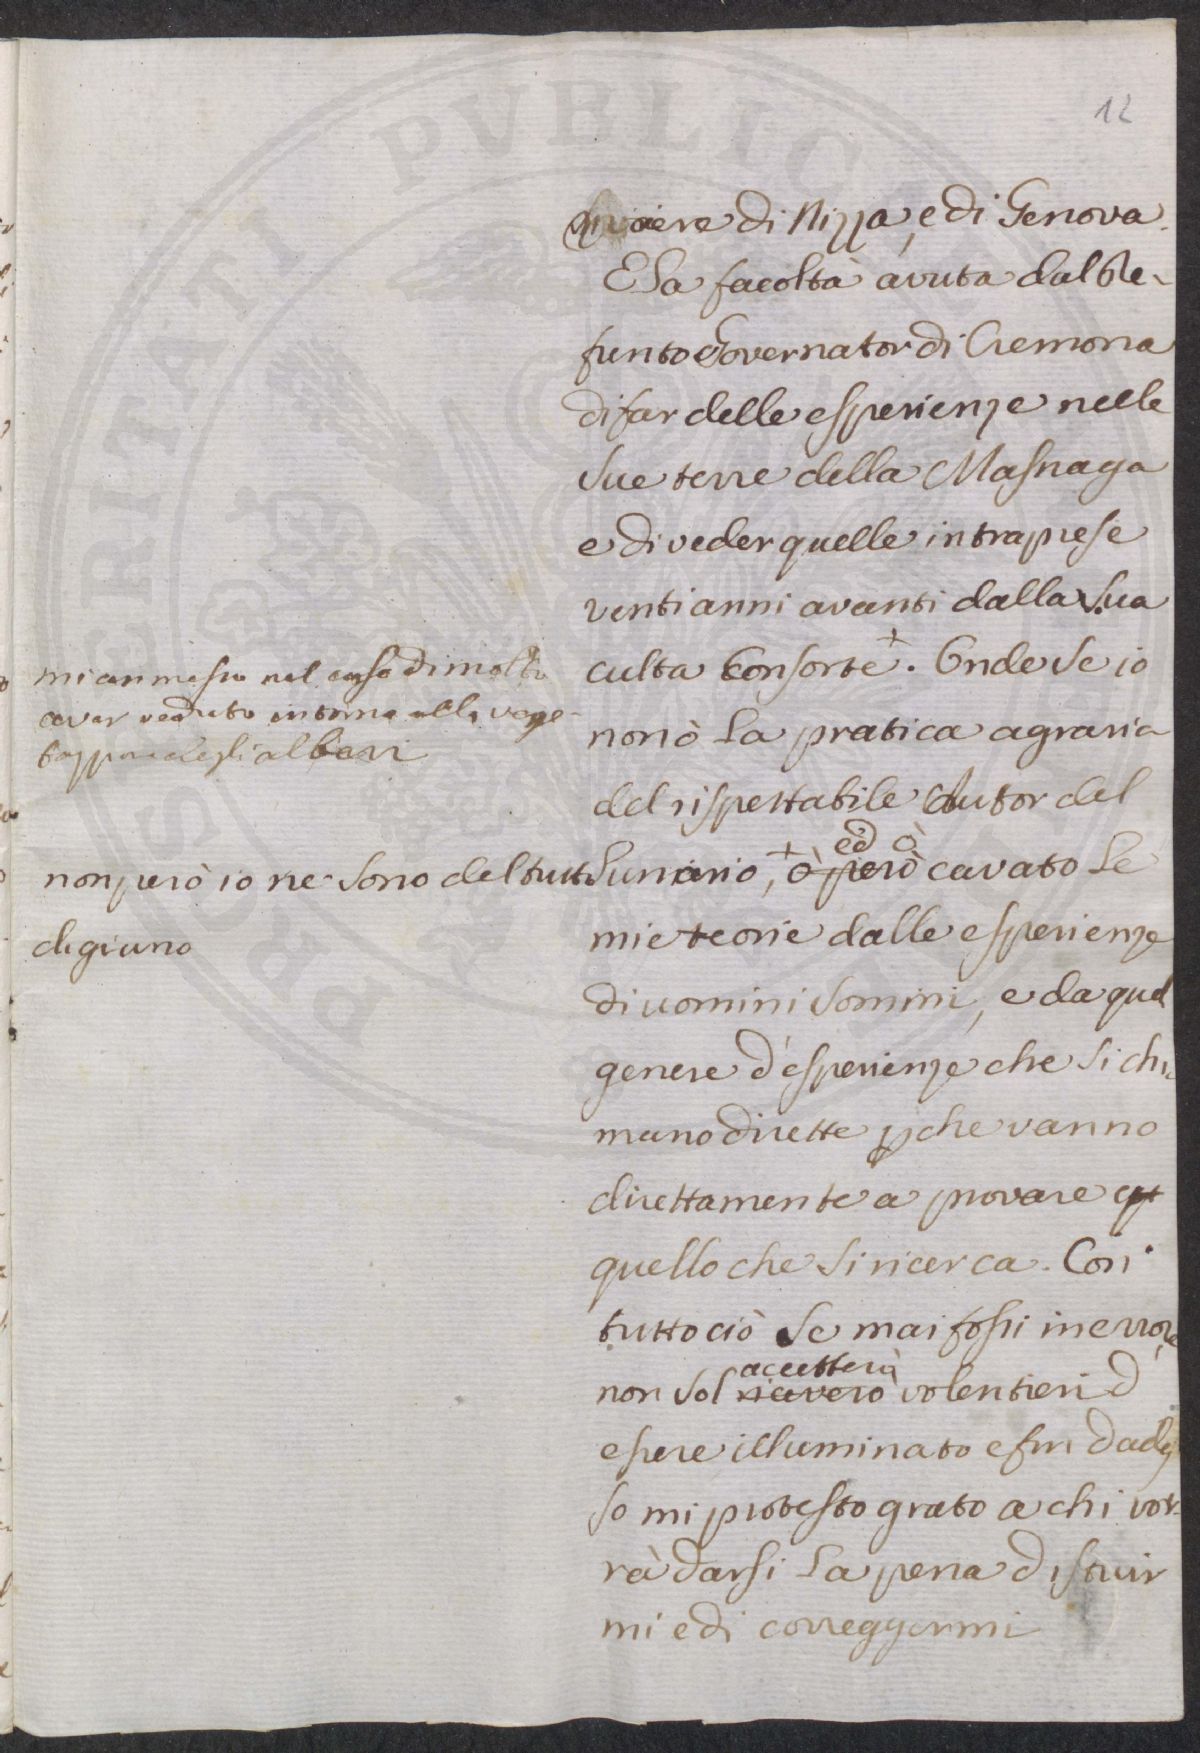 12
riviere di Nizza, e di Genova.
E la facoltà avuta dal De-
funto Governator di Cremona
di far delle esperienze nelle
sue terre della Masnaga
e di veder quelle intraprese
venti anni avanti dalla sua
culta Consorte +. Onde se io
non ò la pratica agraria
del rispettabile Autor del
Lunario, + ò però cavato le
ed ò
mie teorie dalle esperienze
di uomini sommi, e da quel
genere d'esperienze che si chia
mano dirette pche vanno
direttamente a provare
quello che si ricerca. Con
tutto ciò se mai fossi in errore
non sol riceverò volentieri d
accetterò
essere illuminato e fin d'ades
so mi protesto grato a chi vor-
rà darsi la pena d istruir
mi e di correggermi
mi an messo nel caso di molto
aver veduto intorno alla vege-
tazzione degli alberi
non però io ne sono del tutto
digiuno
PVBLICAE